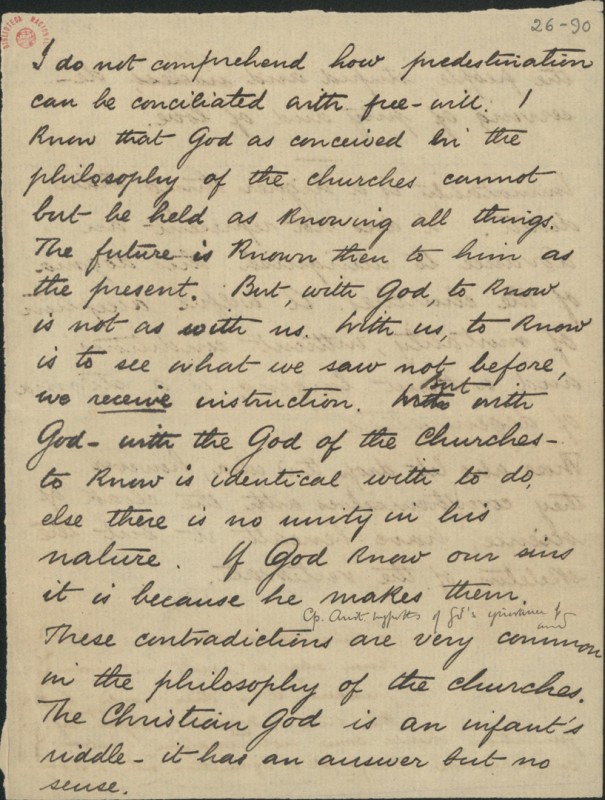 26-90
BIBLIOTECA NACIONAL
I do not comprehend how predestination
can be conciliated with free-will. I
know that God as conceived in the
philosophy of the churches cannot
but be held as knowing all things.
The future is known then to him as
the present. But, with God, to know
is not as with us. With us, to know
is to see what we saw not before,
we receive instruction. But with
God – with the God of the churches –
to know is identical with to do,
else there is no unity in his
nature. If God know our sins
it is because he makes them.
Cp. of God's
These contradictions are very common
in the philosophy of the churches.
The Christian God is an infant's
riddle – it has an answer but no
sense.